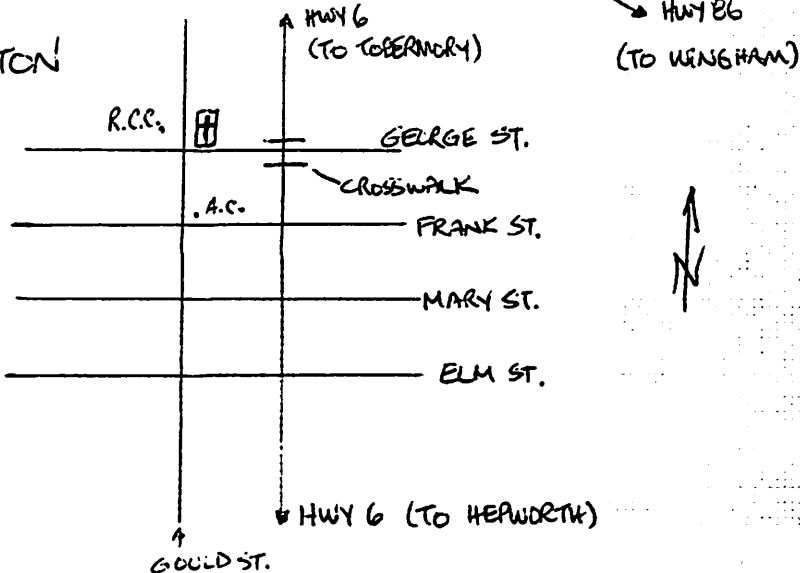 HWY 6
(TO TOBERMORY)
HWY 86
(TO WINGHAM)
TON
R.C.C.
GEORGE ST.
CROSSWALK
.A.C.
FRANK ST.
N
MARY ST.
ELM ST.
HWY 6 (TO HEPWORTH)
GOULD ST.